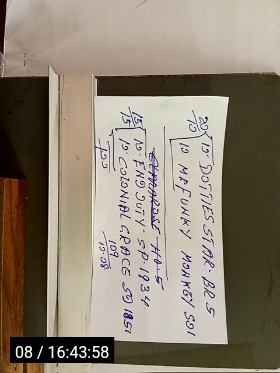 20/70 [10. DOTTIES STAR BR 5
10 MR FUNKY MONKEY SD1
HO. 5
15/15 [10. END DUTY. S.P. 1934
10 COLONIAL GRACE SD 1851
100
109
19-08
08 / 16:43:58